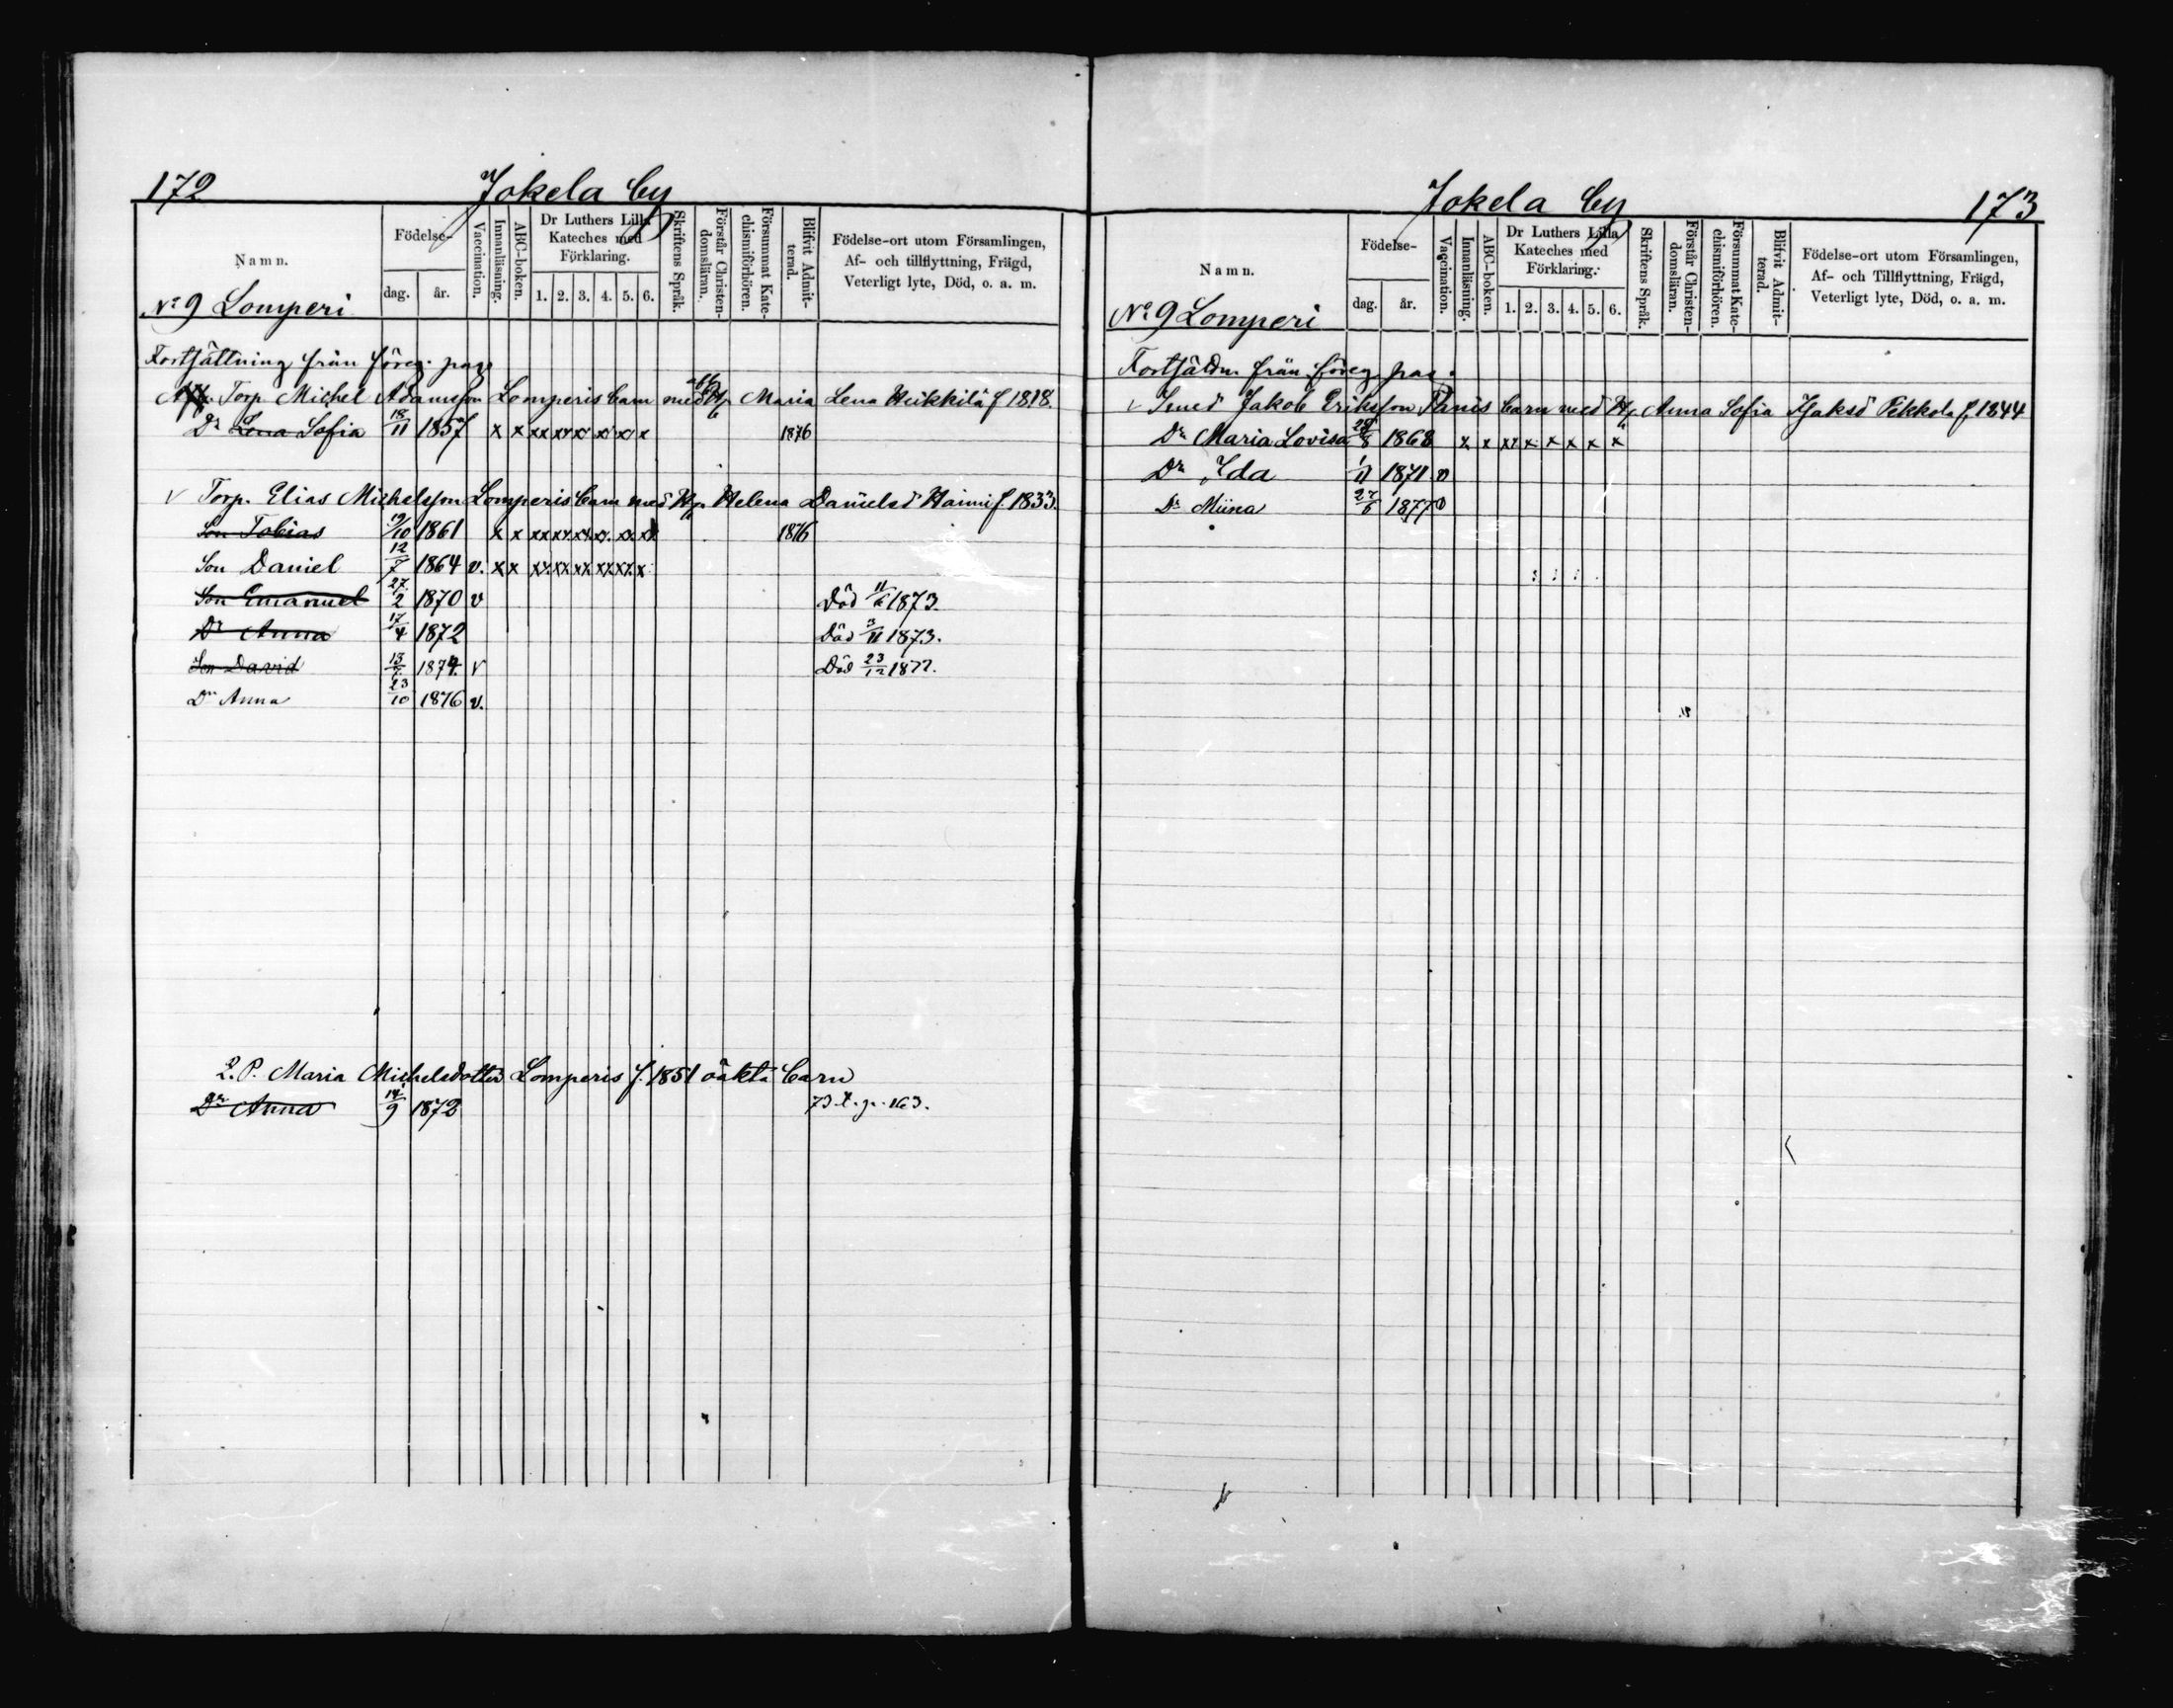 172 Jokela by
Namn. Födelse- dag. år. Vaccination. Innanläsning. ABC-boken. Dr Luthers Lilla Kateches med Förklaring. 1. 2. 3. 4. 5. 6. Skriftens Språk. Förstår Christendomsläran. Försummat Katechismiförhören. Blifvit Admitterad. Födelse-ort utom Församlingen, Af- och tillflyttning, Frägd, Veterligt lyte, Död, o. a. m.
No 9 Lomperi
Fortsättning från föreg. pag.
Torp. Michel Adamsson Lomperis barn med Maria Lena Heikkilä f. 1818.
Dr Lena Sofia 18/11 1857 x x xx xx xx xx xx x 1876
v Torp. Elias Michelsson Lomperis barn med Hu Helena Danielsd Haimi f. 1833.
Son Tobias 19/10 1861 x x xx xx xx xx. xx. xx 1876
Son Daniel 12/7 1864 v. x x xx. xx xx xx xx. x
Son Emanuel 27/2 1870 v Död 11/6 1873.
Dr Anna 17/4 1872 Död 3/11 1873.
Son David 1874 v Död 23/12 1877.
Dr Anna 23/10 1876 v.
Q. P. Maria Michelsdotter Lomperis f. 1851 oäkta barn
Dr Anna 14/9 1872 73 t. p. 163.
Jokela by 173
Namn. Födelse- dag. år. Vaccination. Innanläsning. ABC-boken. Dr Luthers Lilla Kateches med Förklaring. 1. 2. 3. 4. 5. 6. Skriftens Språk. Förstår Christendomsläran. Försummat Katechismiförhören. Blifvit Admitterad. Födelse-ort utom Församlingen, Af- och Tillflyttning, Frägd, Veterligt lyte, Död, o. a. m.
No 9 Lomperi
Fortsättn. från föreg. pag.
v Smed Jakob Eriksson barn med Hu Anna Sofia Pekkola f. 1844
Dr Maria Lovisa 28/8 1868 x x xx x x x x x
Dr Ida 1/11 1871 v
Dr Miina 27/6 1877 v